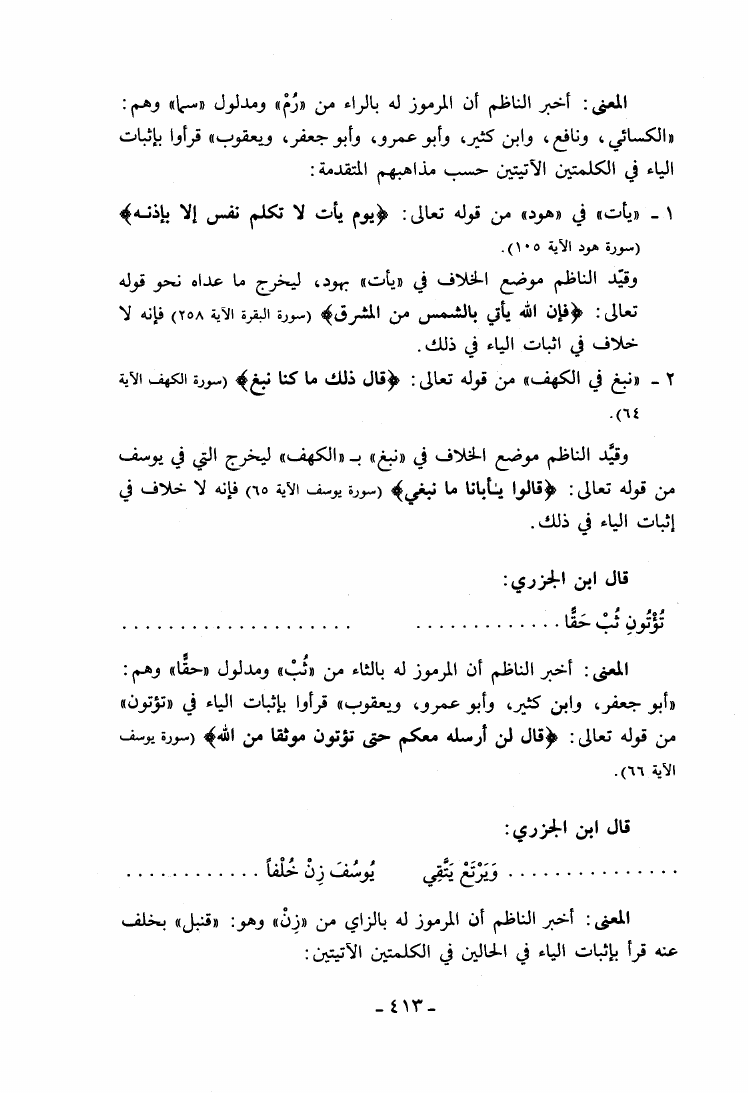 المعنى: أخبر الناظم أن المرموز له بالراء من «رُمْ» ومدلول «سما» وهم:
«الكسائي، ونافع، وابن كثير، وأبو عمرو، وأبو جعفر، ويعقوب» قرأوا بإثبات
الياء في الكلمتين الآتيتين حسب مذاهبهم المتقدمة:
١ - «يأت» في «هود» من قوله تعالى: ﴿يوم يأت لا تكلم نفس إلا بإذنه﴾
(سورة هود الآية ١٠٥).
وقيّد الناظم موضع الخلاف في «يأت» بهود، ليخرج ما عداه نحو قوله
تعالى: ﴿فإن الله يأتي بالشمس من المشرق﴾ (سورة البقرة الآية ٢٥٨) فإنه لا
خلاف في اثبات الياء في ذلك.
٢ - «نبغ في الكهف» من قوله تعالى: ﴿قال ذلك ما كنا نبغ﴾ (سورة الكهف الآية
٦٤).
وقيَّد الناظم موضع الخلاف في «نبغ» بـ «الكهف» ليخرج التي في يوسف
من قوله تعالى: ﴿قالوا يـأبانا ما نبغي﴾ (سورة يوسف الآية ٦٥) فإنه لا خلاف في
إثبات الياء في ذلك.
قال ابن الجزري:
تُؤْتُونِ ثُبْ حَقًّا . . . . . . . . . . . . . . . . . . . . . . . . . . . . . . . .
المعنى: أخبر الناظم أن المرموز له بالثاء من «ثُبْ» ومدلول «حقًّا» وهم:
«أبو جعفر، وابن كثير، وأبو عمرو، ويعقوب» قرأوا بإثبات الياء في «تؤتون»
من قوله تعالى: ﴿قال لن أرسله معكم حتى تؤتون موثقا من الله﴾ (سورة يوسف
الآية ٦٦).
قال ابن الجزري:
. . . . . . . . . . . . . . . وَيَرْتَعْ يَتَّقِي يُوسُفَ زِنْ خُلْفاً . . . . . . . . . . . .
المعنى: أخبر الناظم أن المرموز له بالزاي من «زِنْ» وهو: «قنبل» بخلف
عنه قرأ بإثبات الياء في الحالين في الكلمتين الآتيتين:
- ٤١٣ -